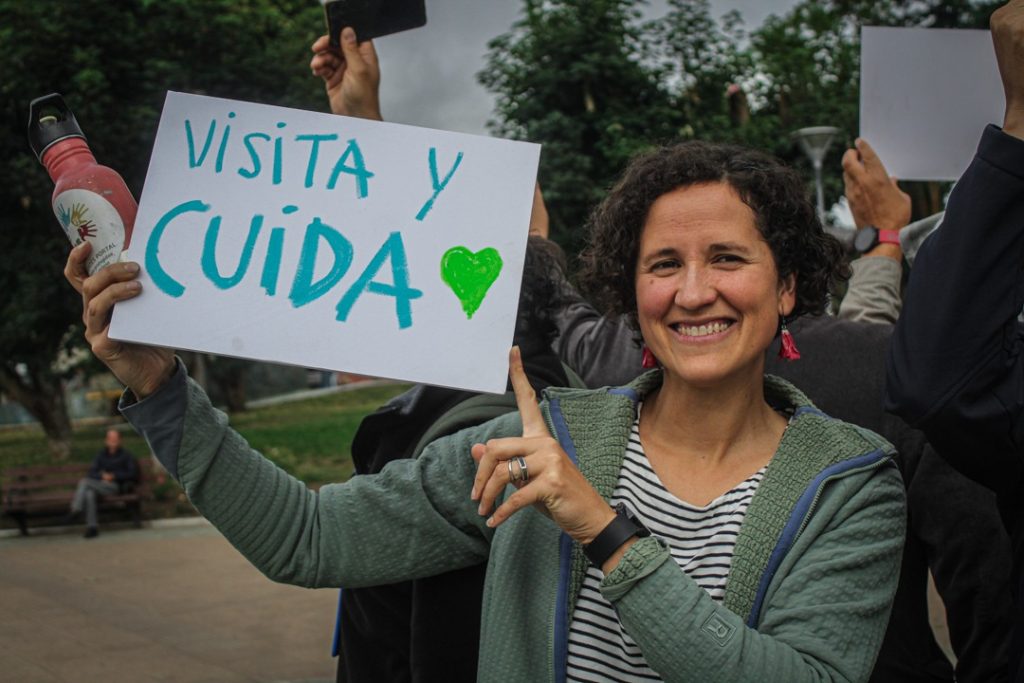 VISITA Y
CUIDA